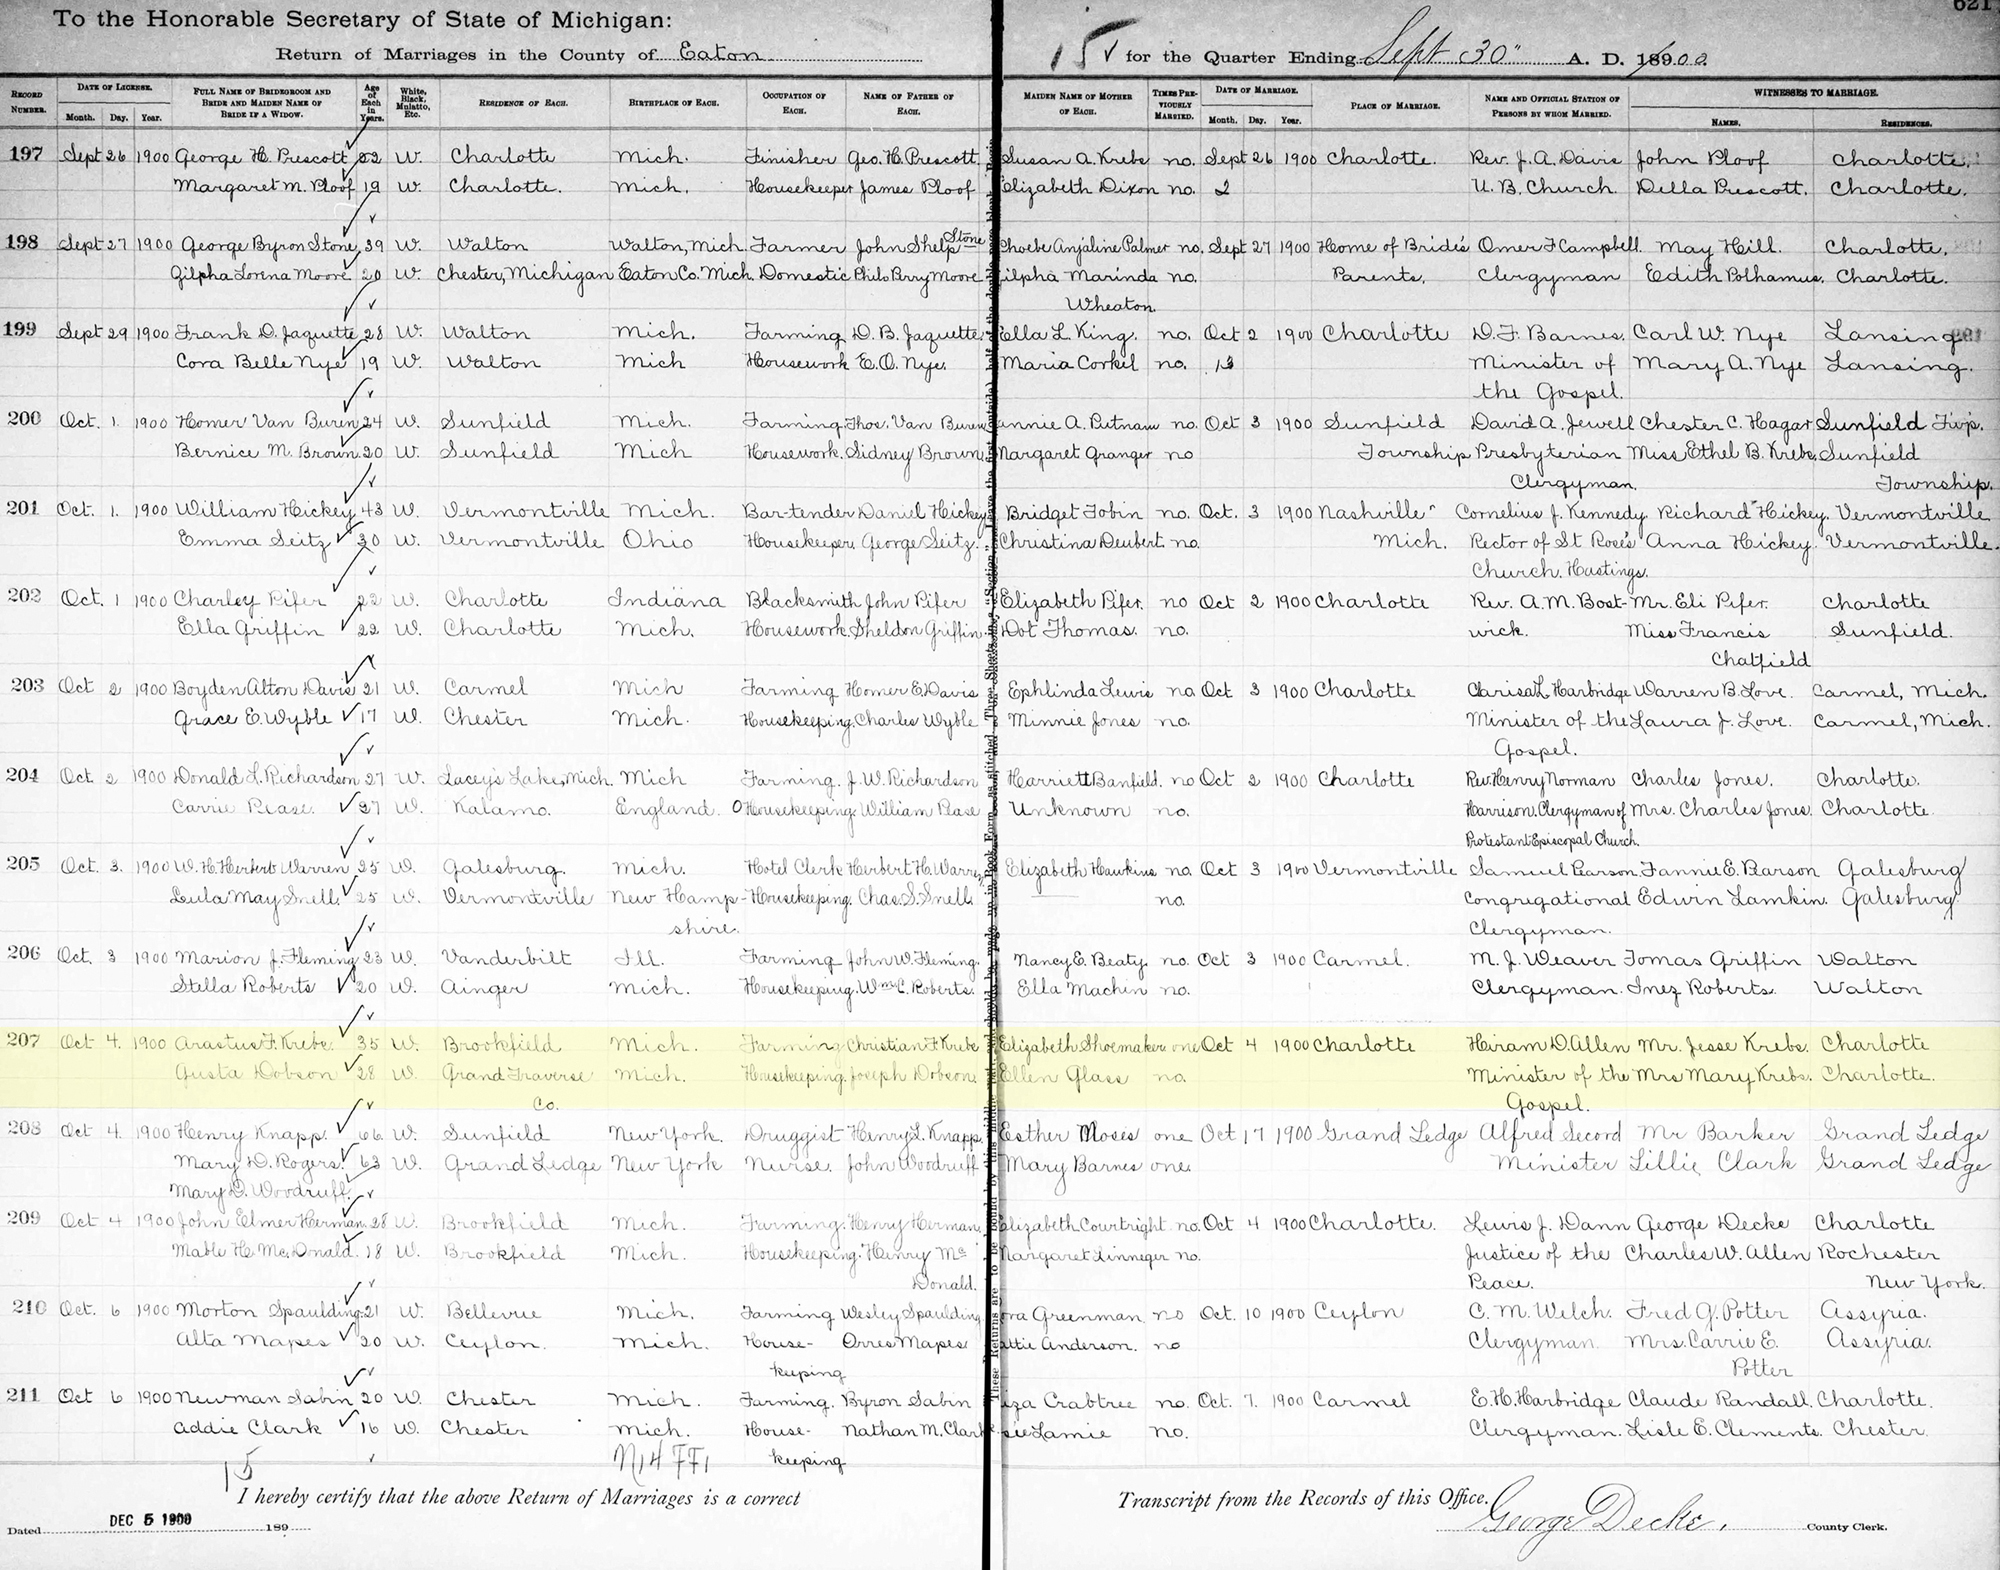 621
To the Honorable Secretary of State of Michigan:
Return of Marriages in the County of Eaton
15 for the Quarter Ending Sept 30" A. D. 1900
RECORD NUMBER. DATE OF LICENSE. Month. Day. Year. FULL NAME OF BRIDEGROOM AND BRIDE AND MAIDEN NAME OF BRIDE IF A WIDOW. Age of Each in Years. White, Black, Mulatto, Etc. RESIDENCE OF EACH. BIRTHPLACE OF EACH. OCCUPATION OF EACH. NAME OF FATHER OF EACH. MAIDEN NAME OF MOTHER OF EACH. TIMES PREVIOUSLY MARRIED. DATE OF MARRIAGE. Month. Day. Year. PLACE OF MARRIAGE. NAME AND OFFICIAL STATION OF PERSONS BY WHOM MARRIED. WITNESSES TO MARRIAGE. NAMES. RESIDENCES.
197 Sept 26 1900 George H. Prescott W. Charlotte Mich. Finisher Geo. H. Prescott. Susan A. Krebs no. Sept 26 1900 Charlotte. Rev. J. A. Davis John Ploof Charlotte.
Margaret M. Ploof 19 W. Charlotte. Mich. Housekeeper James Ploof Elizabeth Dixon no. 2 U. B. Church. Della Prescott. Charlotte.
198 Sept 27 1900 George Byron Stone 39 W. Walton Walton, Mich. Farmer John Shelp Stone Phoebe Anjaline Palmer no. Sept 27 1900 Home of Bride's Omer F Campbell. May Hill. Charlotte.
Zilpha Lorena Moore 20 W. Chester, Michigan Eaton Co. Mich. Domestic Philo Perry Moore Zilpha Marinda no. Parents. Clergyman Edith Polhamus. Charlotte.
Wheaton
199 Sept 29 1900 Frank D. Jaquette 28 W. Walton Mich. Farming D. B. Jaquette Ella L. King. no. Oct 2 1900 Charlotte D. F. Barnes. Carl W. Nye Lansing
Cora Belle Nye 19 W. Walton Mich Housework E. O. Nye. Maria Corkel no. 13 Minister of Mary A. Nye Lansing.
the Gospel.
200 Oct. 1. 1900 Homer Van Buren 24 W. Sunfield Mich. Farming Thos. Van Buren annie A. Putnam no. Oct 3 1900 Sunfield David A. Jewell Chester C. Hagar Sunfield Twp.
Bernice M. Brown 20 W. Sunfield Mich Housework. Sidney Brown Margaret Granger no Township Presbyterian Miss Ethel B. Krebs. Sunfield
Clergyman. Township.
201 Oct. 1. 1900 William Hickey 43 W. Vermontville Mich. Bar-tender Daniel Hickey Bridget Tobin no. Oct. 3 1900 Nashville Cornelius J. Kennedy Richard Hickey. Vermontville
Emma Seitz 30 W. Vermontville Ohio Housekeeper George Seitz. Christina Deubert. no. Mich. Rector of St Rose's Anna Hickey Vermontville.
Church. Hastings.
202 Oct. 1 1900 Charley Pifer 22 W. Charlotte Indiana Blacksmith John Pifer Elizabeth Pifer. no Oct 2 1900 Charlotte Rev. A. M. Bost- Mr. Eli Pifer. Charlotte
Ella Griffin 22 W. Charlotte Mich. Housework Sheldon Griffin. Dot Thomas. no. wick. Miss Francis Sunfield.
Chatfield
203 Oct 2 1900 Boyden Alton Davis 21 W. Carmel Mich Farming Homer E. Davis Ephlinda Lewis no Oct 3 1900 Charlotte Clarisa L. Harbridge Warren B. Love. Carmel, Mich.
Grace E. Wyble 17 W. Chester Mich. Housekeeping. Charles Wyble Minnie Jones no. Minister of the Laura J. Love. Carmel, Mich.
Gospel.
204 Oct. 2 1900 Donald L. Richardson 27 W. Lacey's Lake, Mich. Mich Farming. J. W. Richardson Harriett Banfield. no Oct 2 1900 Charlotte Rev. Henry Norman Charles Jones. Charlotte.
Carrie Pease. 27 W. Kalamo. England. Housekeeping. William Pease Unknown no. Harrison. Clergyman of Mrs. Charles Jones. Charlotte.
Protestant Episcopal Church.
205 Oct. 3. 1900 W. H. Herbert Warren 25 W. Galesburg. Mich. Hotel Clerk Herbert H. Warren Elizabeth Hawkins no. Oct 3 1900 Vermontville Samuel Pearson. Fannie E. Pearson Galesburg
Lula May Snell. 25 W. Vermontville New Hamp- Housekeeping. Chas. S. Snell. no. Congregational Edwin Lamkin. Galesburg.
shire. Clergyman.
206 Oct. 3 1900 Marion J. Fleming 23 W. Vanderbilt Ill. Farming John W. Fleming. Nancy E. Beaty. no. Oct 3 1900 Carmel. M. J. Weaver Tomas Griffin Walton
Stella Roberts 20 W. Ainger Mich. Housekeeping. Wm C. Roberts. Ella Machin no. Clergyman. Inez Roberts. Walton
207 Oct 4. 1900 Arastus F. Krebs. 35 W. Brookfield Mich. Farming Christian F. Krebs Elizabeth Shoemaker one Oct 4 1900 Charlotte Hiram D. Allen Mr. Jesse Krebs. Charlotte
Gusta Dobson 28 W. Grand Traverse Mich. Housekeeping. Joseph Dobson. Ellen Glass no. Minister of the Mrs Mary Krebs. Charlotte.
Co. Gospel.
208 Oct 4. 1900 Henry Knapp. 66 W. Sunfield New York. Druggist Henry L. Knapp. Esther Moses one Oct 17 1900 Grand Ledge Alfred Secord Mr Barker Grand Ledge
Mary D. Rogers. 63 W. Grand Ledge New York Nurse. John Woodruff Mary Barnes one. Minister Lillie Clark Grand Ledge
Mary D. Woodruff.
209 Oct 4 1900 John Elmer Herman 28 W. Brookfield Mich. Farming. Henry Herman. Elizabeth Courtright no. Oct 4 1900 Charlotte. Lewis J. Dann George Decke Charlotte
Mable H. Mc. Donald. 18 W. Brookfield Mich. Housekeeping. Henry Mc Margaret Linneger no. Justice of the Charles W. Allen Rochester
Donald. Peace. New York.
210 Oct. 6 1900 Morton Spaulding 21 W. Bellevue Mich. Farming Wesley Spaulding ora Greenman no Oct. 10 1900 Ceylon C. M. Welch. Fred G. Potter Assyria.
Alta Mapes 20 W. Ceylon. Mich. House- Orres Mapes attie Anderson. no Clergyman. Mrs. Carrie E. Assyria.
keeping Potter
211 Oct 6 1900 Newman Sabin 20 W. Chester Mich. Farming. Byron Sabin iza Crabtree no. Oct. 7. 1900 Carmel E. H. Harbridge Claude Randall. Charlotte.
Addie Clark 16 W. Chester Mich. House- Nathan M. Clark sie Lamie no. Clergyman. Lisle E. Clements. Chester.
keeping
15
I hereby certify that the above Return of Marriages is a correct Transcript from the Records of this Office.
Dated DEC 5 1900 189 George Decke. County Clerk.